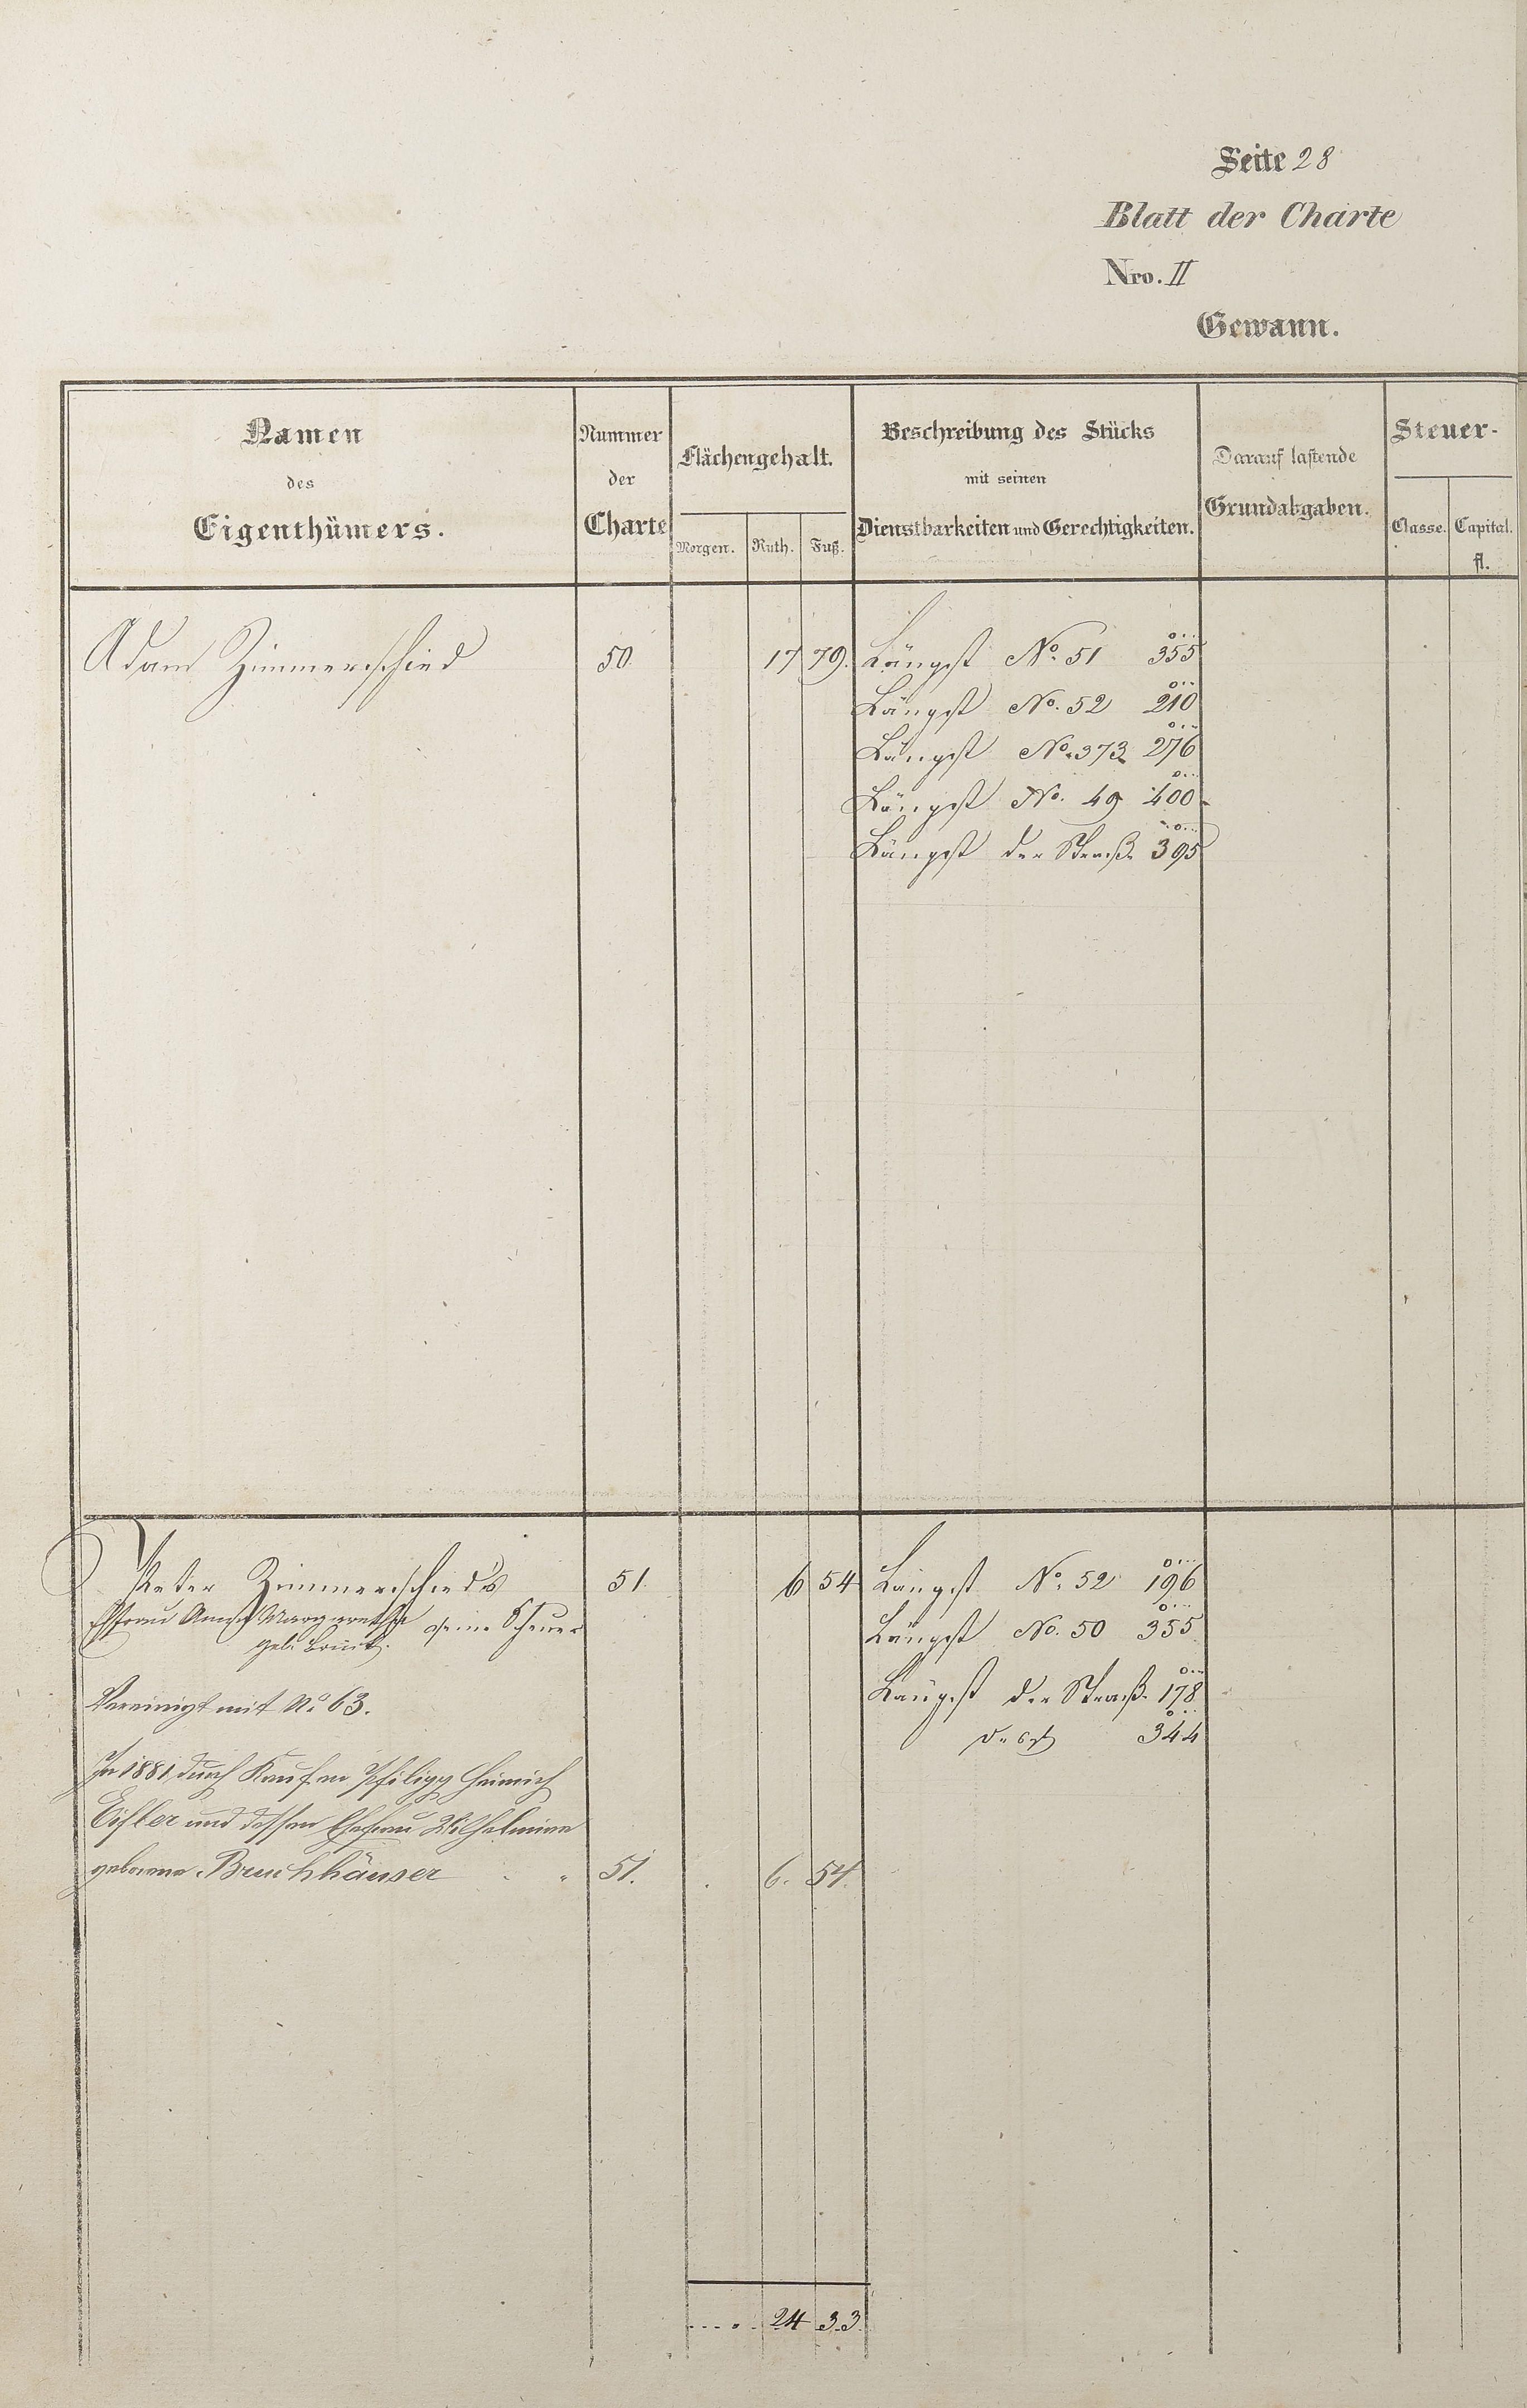 Seite 28
Blatt der Charte
Nro. II
Gewann.
Namen des Eigenthümers.
Nummer der Charte
Flächengehalt.
Morgen. Ruth. Fuß.
Beschreibung des Stücks mit seinen Dienstbarkeiten und Gerechtigkeiten.
Darauf lastende Grundabgaben.
Steuer-
Classe. Capital. fl.
Adam Zimmerschied 50. 17 79. Längst No. 51 355
Längst No. 52 210
Längst No. 373 276
Längst No. 49 400
Längst der Straße 395
Peter Zimmerschied's 51. 6 54 Längst No. 52 196
Ehfrau Anna Margaretha
geb. Längst No. 50 355
Vereinigt mit No 63. Längst der Straße 178
344
In 1881 durch Kauf an Philipp Heinrich
und dessen Ehefrau Wilhelmine
geborene Bruchhäuser 51. 6. 54.
24 33